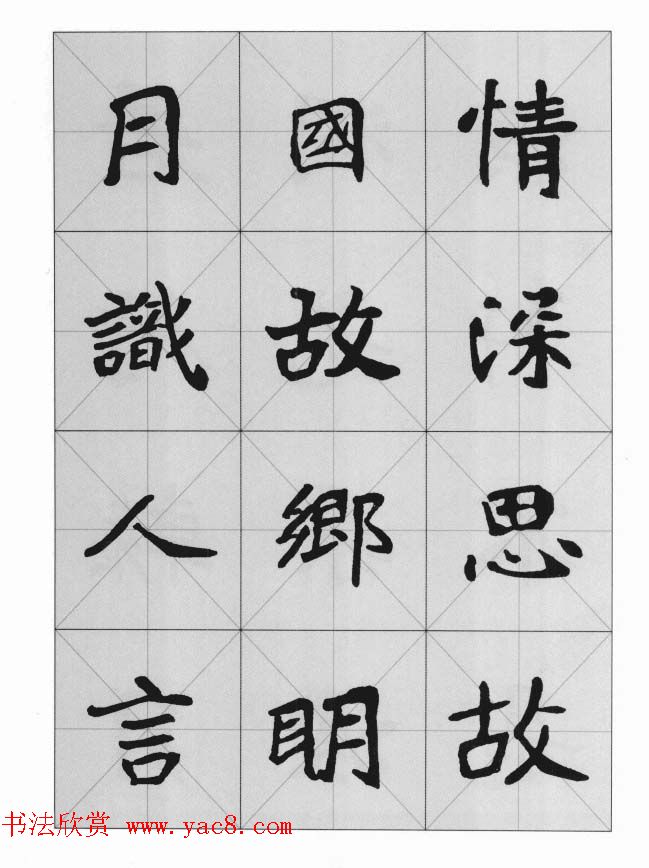 情深思故
國故鄉明
月識人言
书法欣赏 www.yac8.com